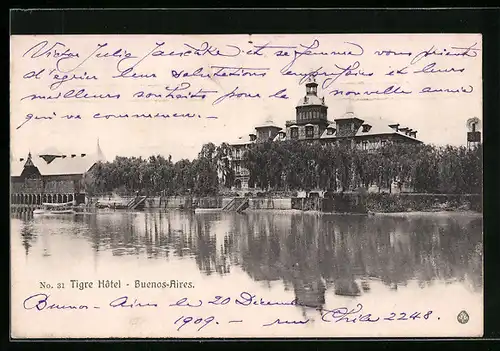 Victor Julio Jaeschke et sa femme vous prient
d'agréer leurs salutations empressées et leurs
meilleurs souhaits pour la nouvelle année
qui va commencer.
No. 31 Tigre Hôtel - Buenos-Aires.
Buenos-Aires le 20 Décembre
1909. - rue Chile 2248.